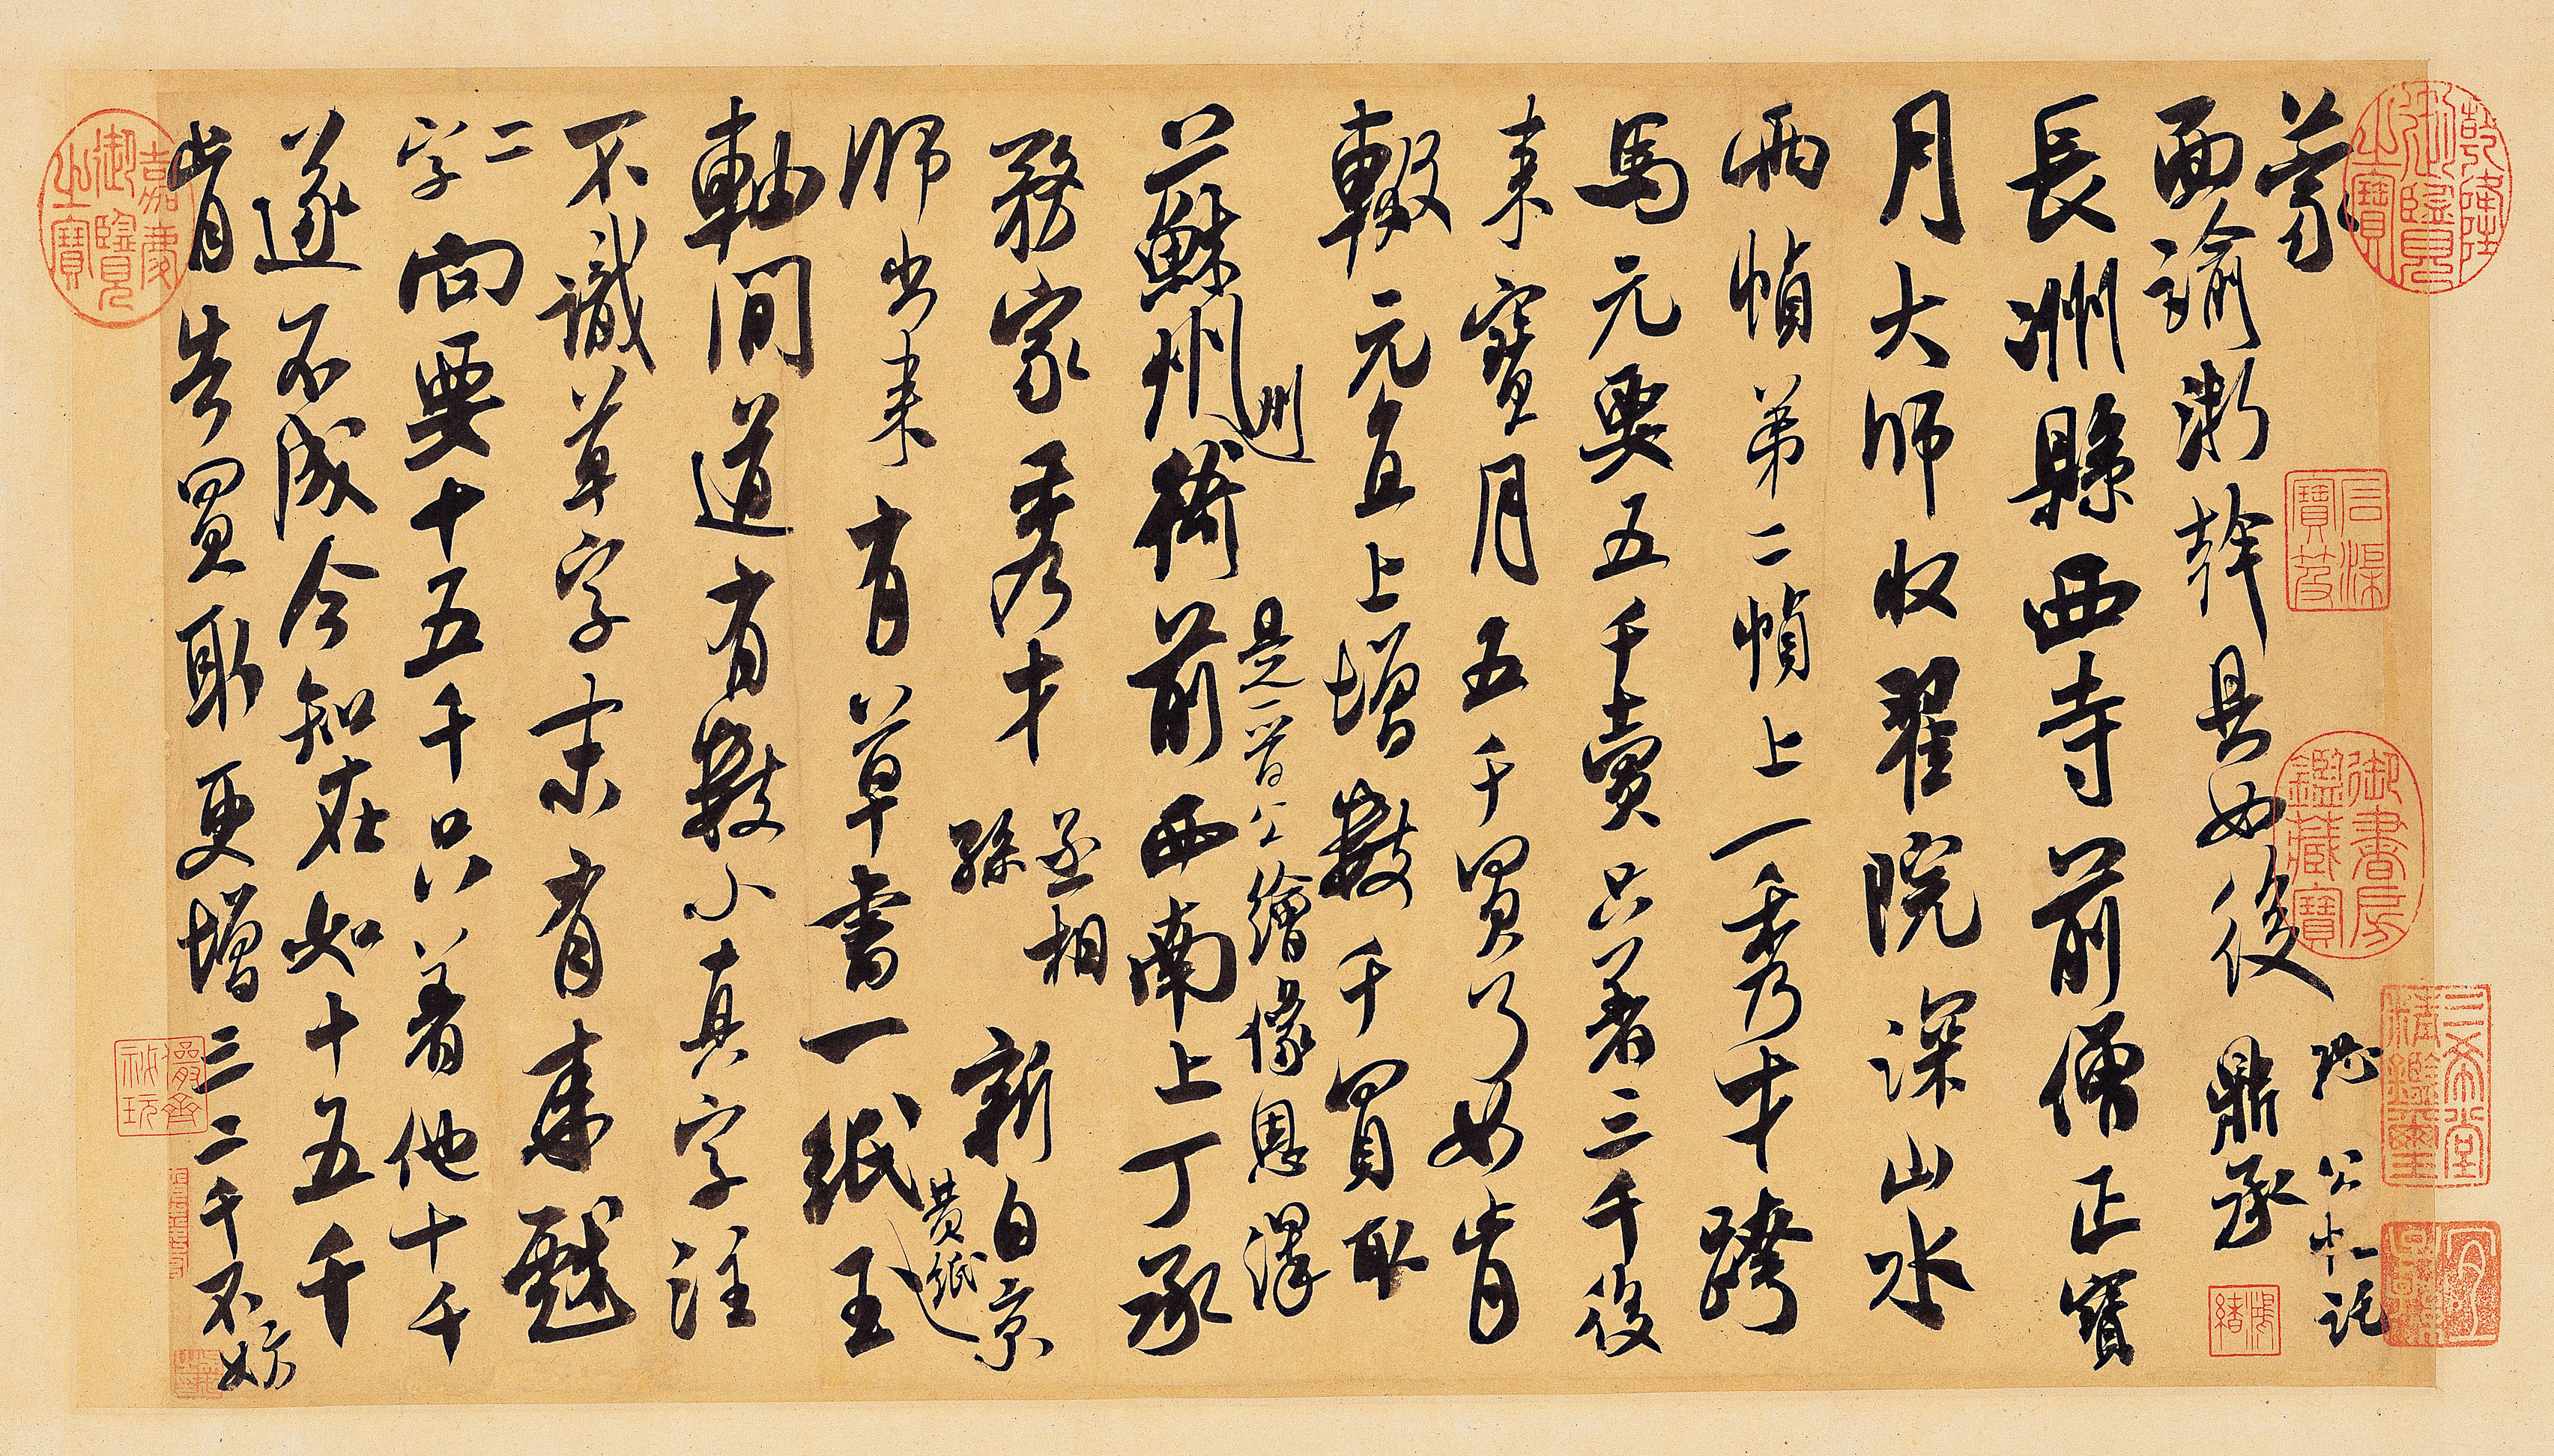 乾隆御覽之寶
石渠寶笈
御書房鑑藏寶
三希堂精鑑璽
宜子孫
蒙
面諭浙幹具如後 鼎承
鴻緒
長洲縣西寺前僧正寶
月大師收翟院深山水
兩幀第二幀上一秀才跨
馬元要五千賣只著三千後
来寶月五千買了如肯
輟元直上增數千買取
州
是一晉公繪像恩澤
蘇州衙前西南上丁承
務家秀才 丞相孫 新自京
師出来有草書一紙玉
黄紙
軸間道有數小真字注
不識草字末有来戲
二字向要十五千只著他十千
遂不成今知在如十五千
肯告買取更增三二千不妨
嘉慶御覽之寶
祕玩